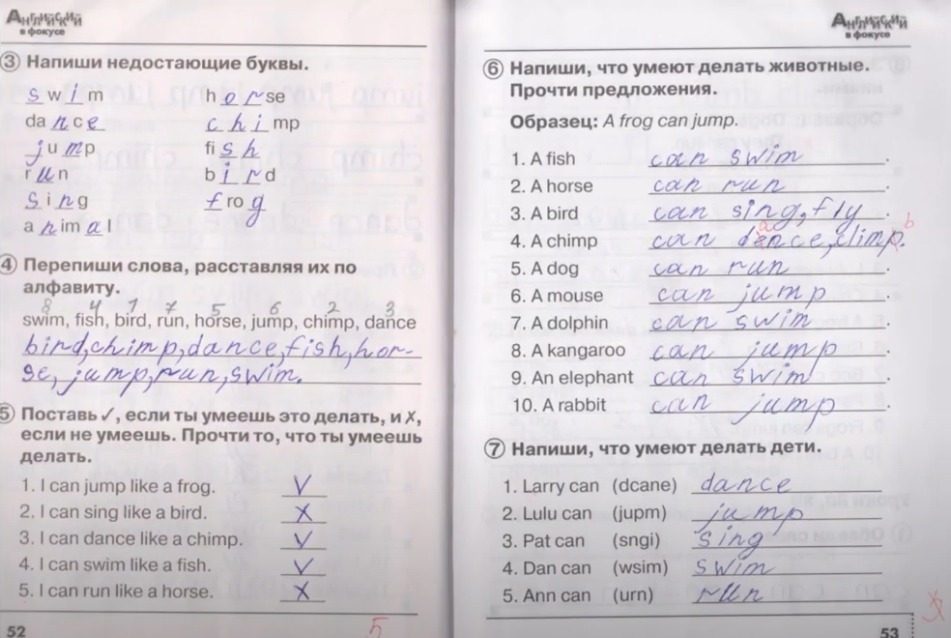 Английский
в фокусе
③ Напиши недостающие буквы.
swim horse
dance chimp
jump fish
run bird
sing frog
animal
④ Перепиши слова, расставляя их по
алфавиту.
8 4 1 7 5 6 2 3
swim, fish, bird, run, horse, jump, chimp, dance
bird, chimp, dance, fish, hor-
se, jump, run, swim.
⑤ Поставь ✓, если ты умеешь это делать, и ✗,
если не умеешь. Прочти то, что ты умеешь
делать.
1. I can jump like a frog. V
2. I can sing like a bird. X
3. I can dance like a chimp. V
4. I can swim like a fish. V
5. I can run like a horse. X
52
5
Английский
в фокусе
⑥ Напиши, что умеют делать животные.
Прочти предложения.
Образец: A frog can jump.
1. A fish can swim.
2. A horse can run.
3. A bird can sing, fly.
4. A chimp can dence, climp.
a b
5. A dog can run.
6. A mouse can jump.
7. A dolphin can swim.
8. A kangaroo can jump.
9. An elephant can swim.
10. A rabbit can jump.
⑦ Напиши, что умеют делать дети.
1. Larry can (dcane) dance
2. Lulu can (jupm) jump
3. Pat can (sngi) sing
4. Dan can (wsim) swim
5. Ann can (urn) run
53